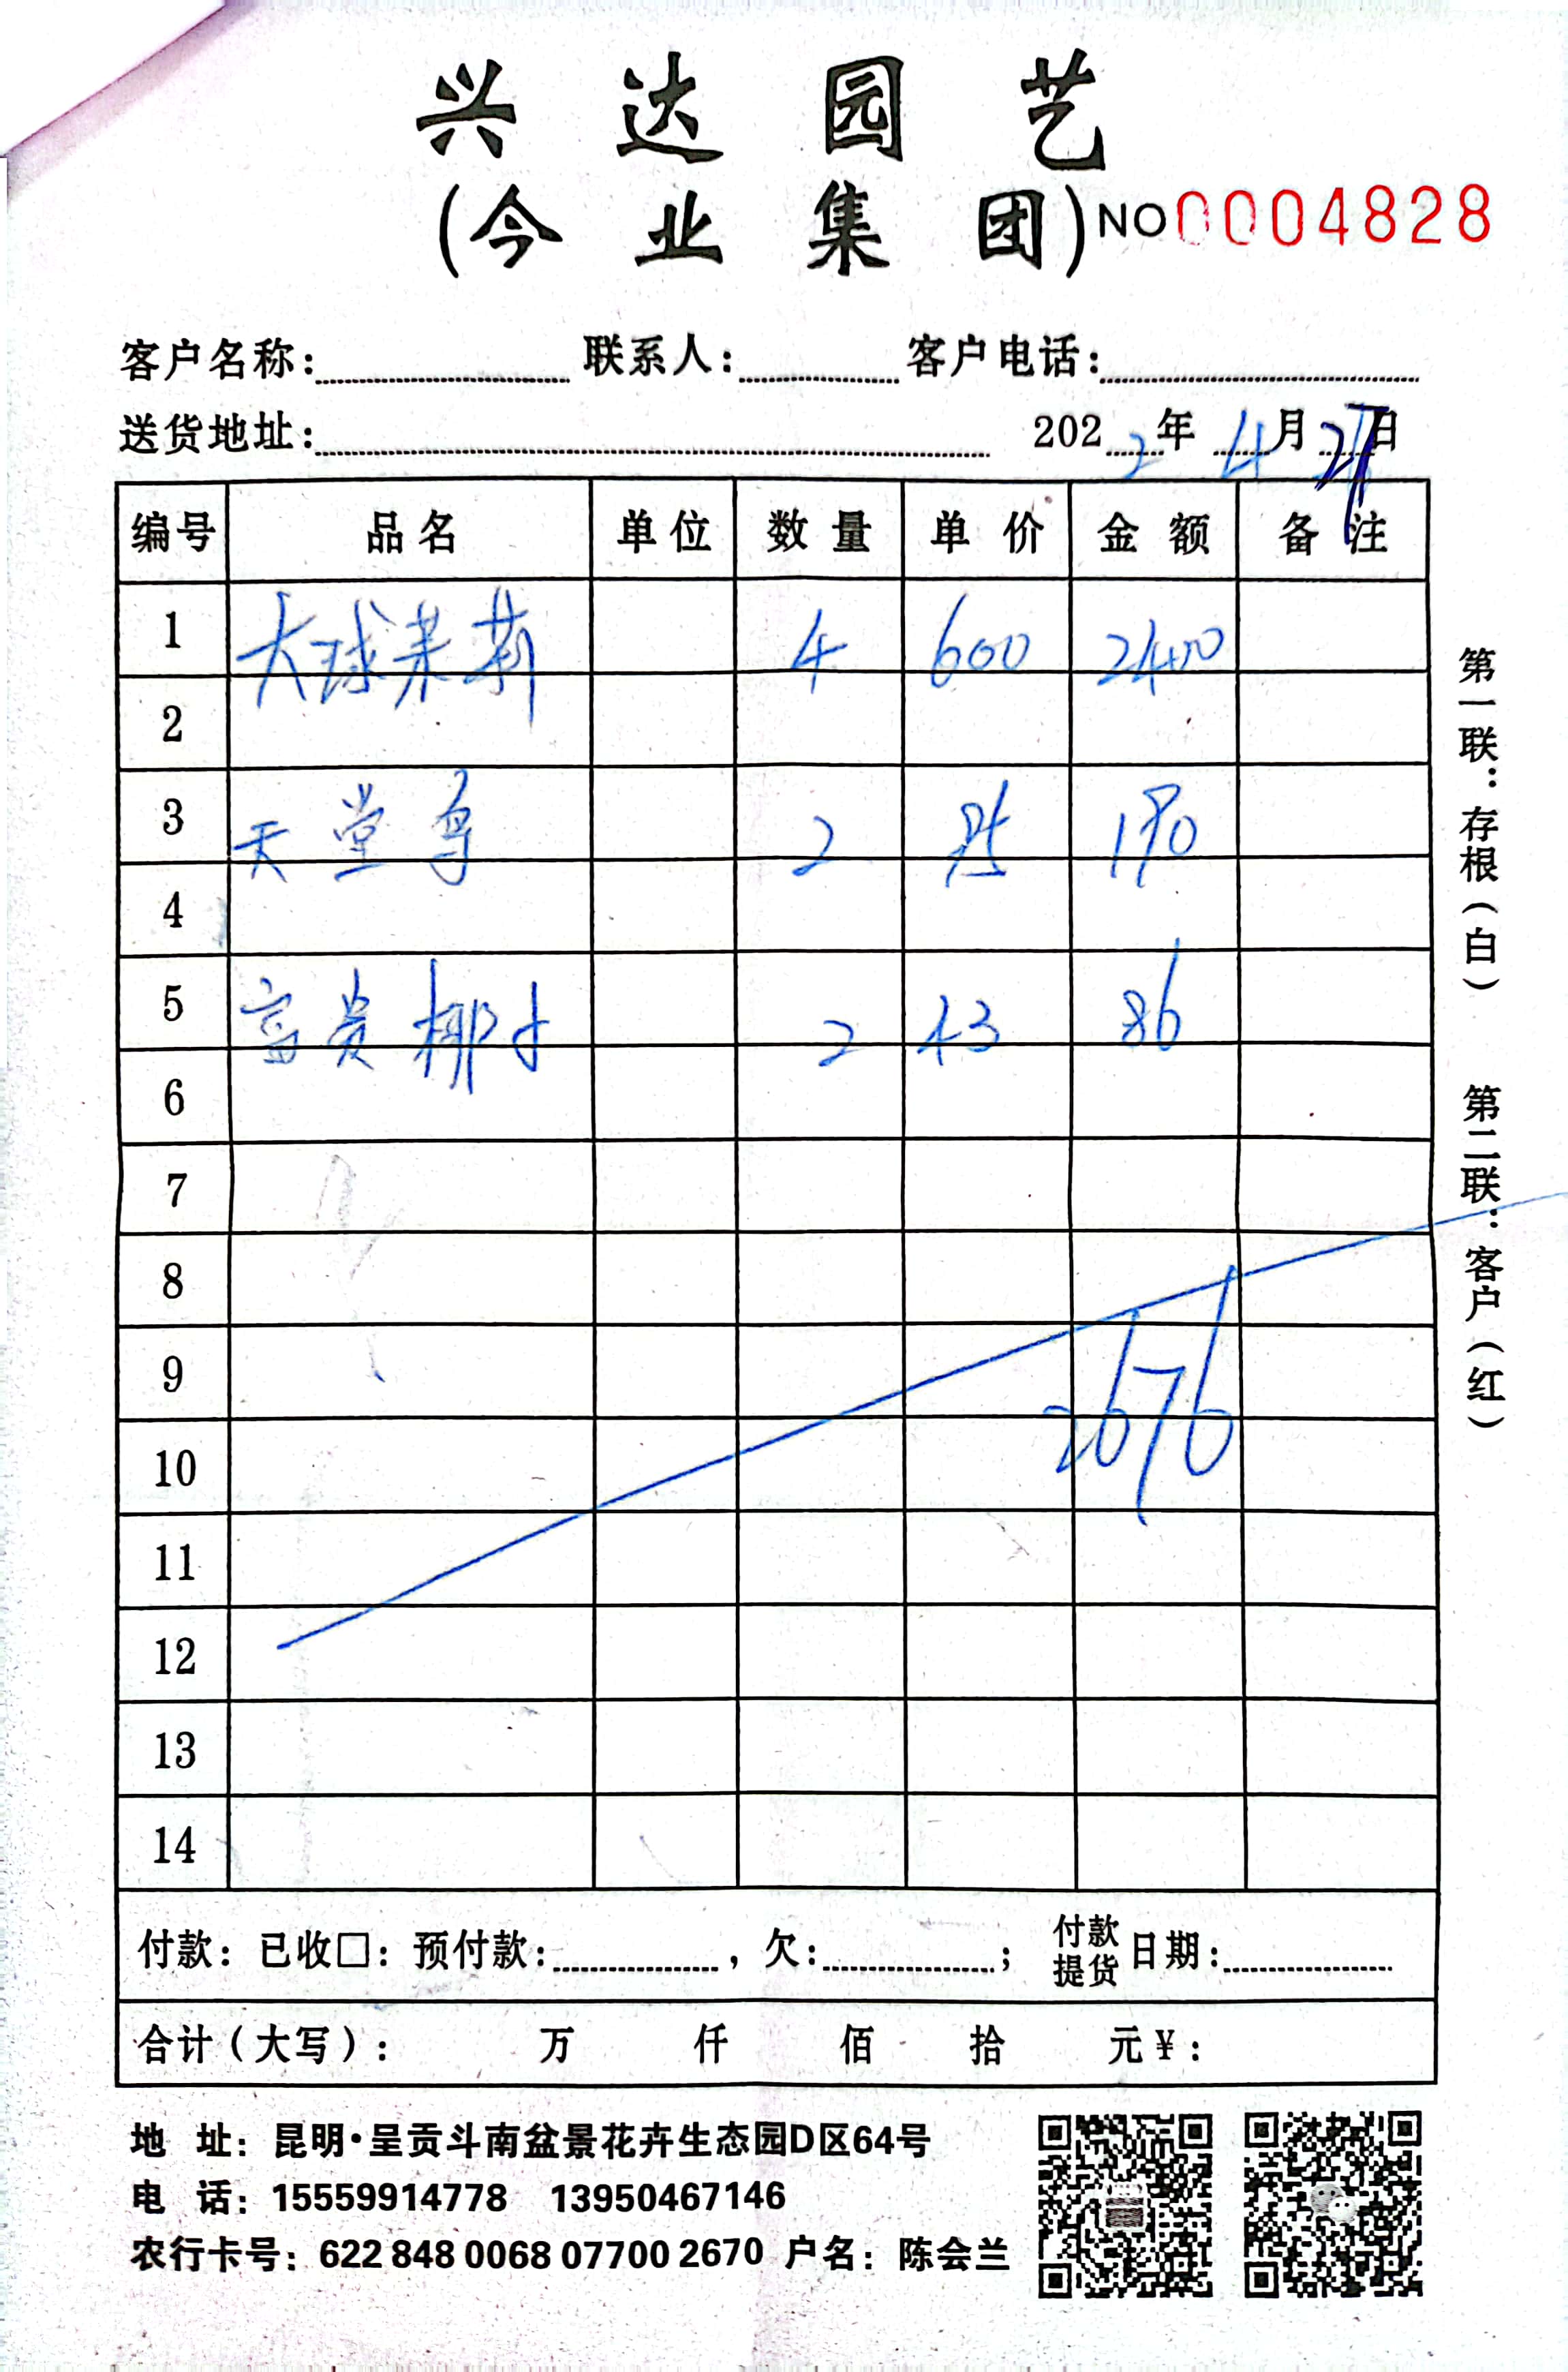 兴达园艺
(今业集团) NO 0004828
客户名称： 联系人： 客户电话：
送货地址： 2022年4月27日
编号 品名 单位 数量 单价 金额 备注
1 大球茉莉 4 600 2400
2
3 天堂鸟 2 95 190
4
5 富贵椰子 2 43 86
6
7
8
9 2676
10
11
12
13
14
付款：已收□：预付款： ，欠： ；付款提货日期：
合计(大写)： 万 仟 佰 拾 元¥：
第一联：存根(白) 第二联：客户(红)
地 址：昆明·呈贡斗南盆景花卉生态园D区64号
电 话：15559914778 13950467146
农行卡号：622 848 0068 07700 2670 户名：陈会兰